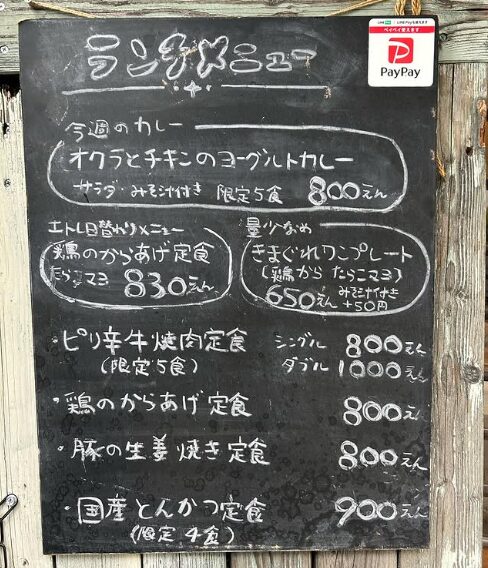 LINE Payも使えます
ペイペイ使えます
PayPay
ランチメニュー
今週のカレー
オクラとチキンのヨーグルトカレー
サラダ・みそ汁付き 限定5食 800えん
エトレ日替わりメニュー
鶏のからあげ定食
たらこマヨ 830えん
量少なめ
きまぐれワンプレート
(鶏から たらこマヨ)
650えん みそ汁付き +50円
・ピリ辛牛焼肉定食 シングル 800えん
(限定5食) ダブル 1000えん
・鶏のからあげ定食 800えん
・豚の生姜焼き定食 800えん
・国産とんかつ定食 900えん
(限定4食)